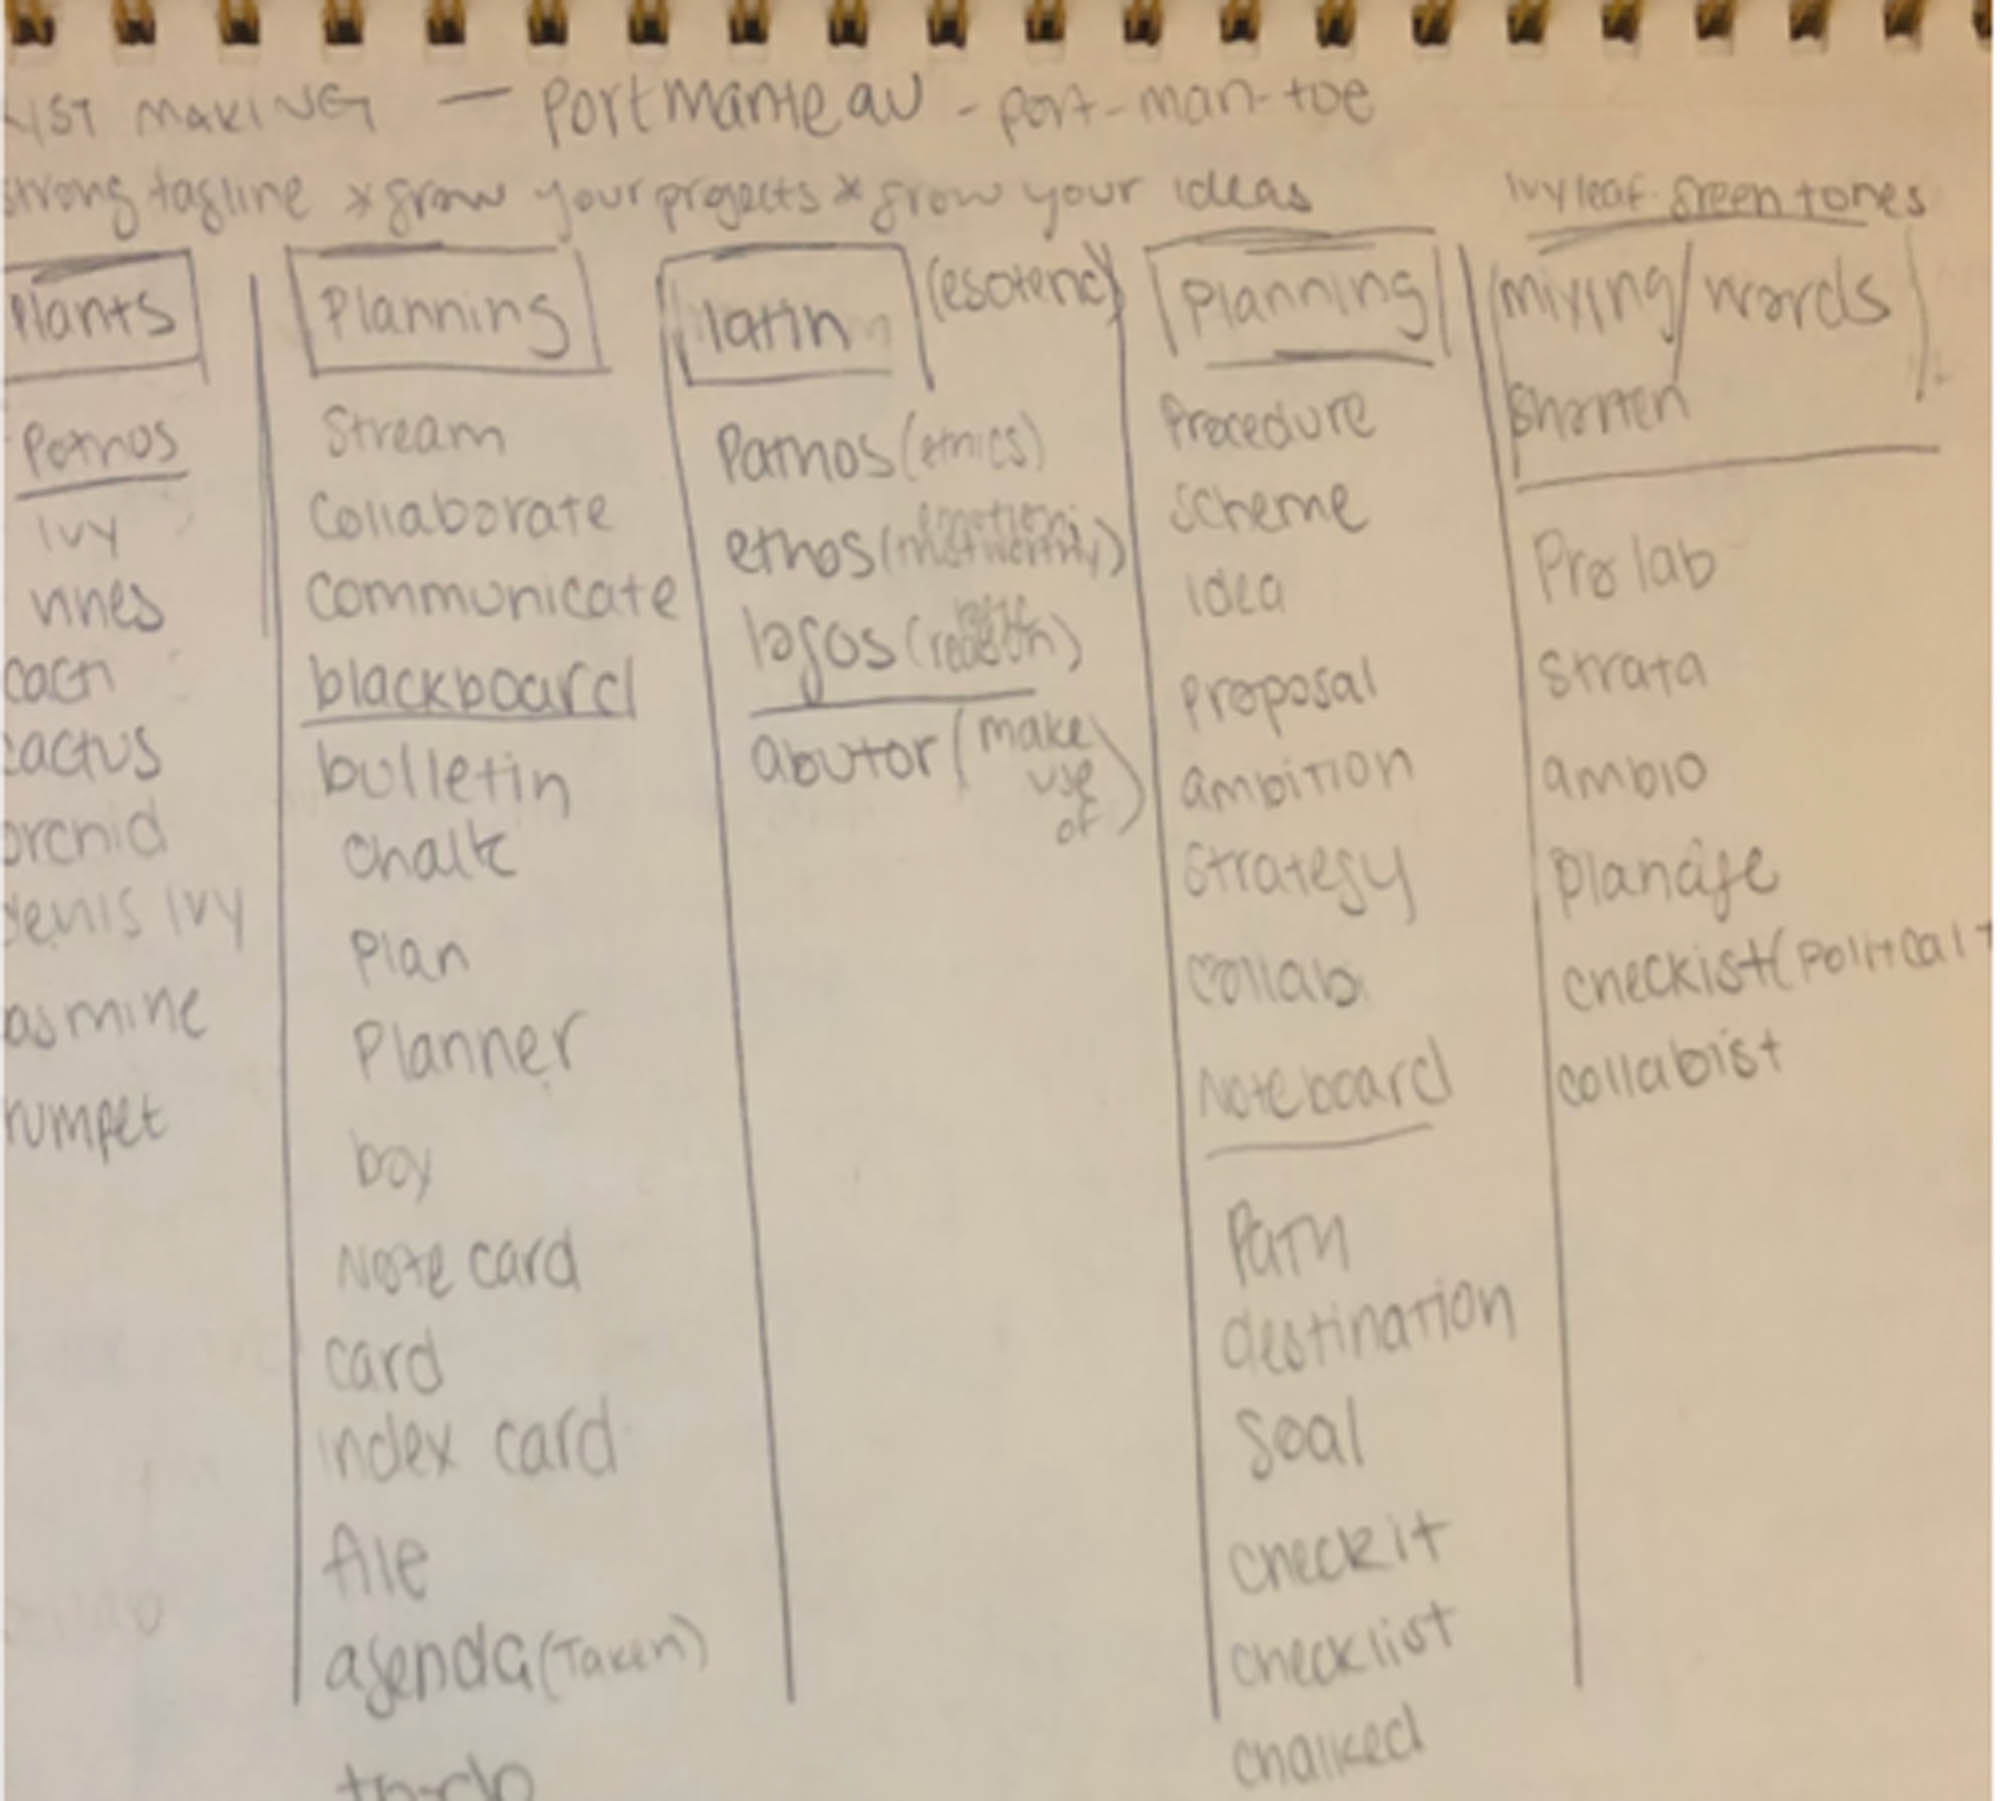 LIST MAKING — portmanteau - port-man-toe
strong tagline *grow your projects *grow your ideas
Ivy leaf green tones
Plants
Pothos
Ivy
vines
cacti
cactus
orchid
Ivy
jasmine
trumpet
Planning
Stream
Collaborate
Communicate
blackboard
bulletin
chalk
plan
Planner
boy
Note card
card
index card
file
agenda (Taken)
to-do
latin (esoteric)
Pathos (ethics)
ethos
logos
abutor (make
use
of)
Planning
Procedure
Scheme
idea
Proposal
ambition
Strategy
collab
Noteboard
Path
destination
goal
checkit
checklist
chalked
mixing/words
shorten
Pro lab
Strata
ambio
checkist (political
collabist